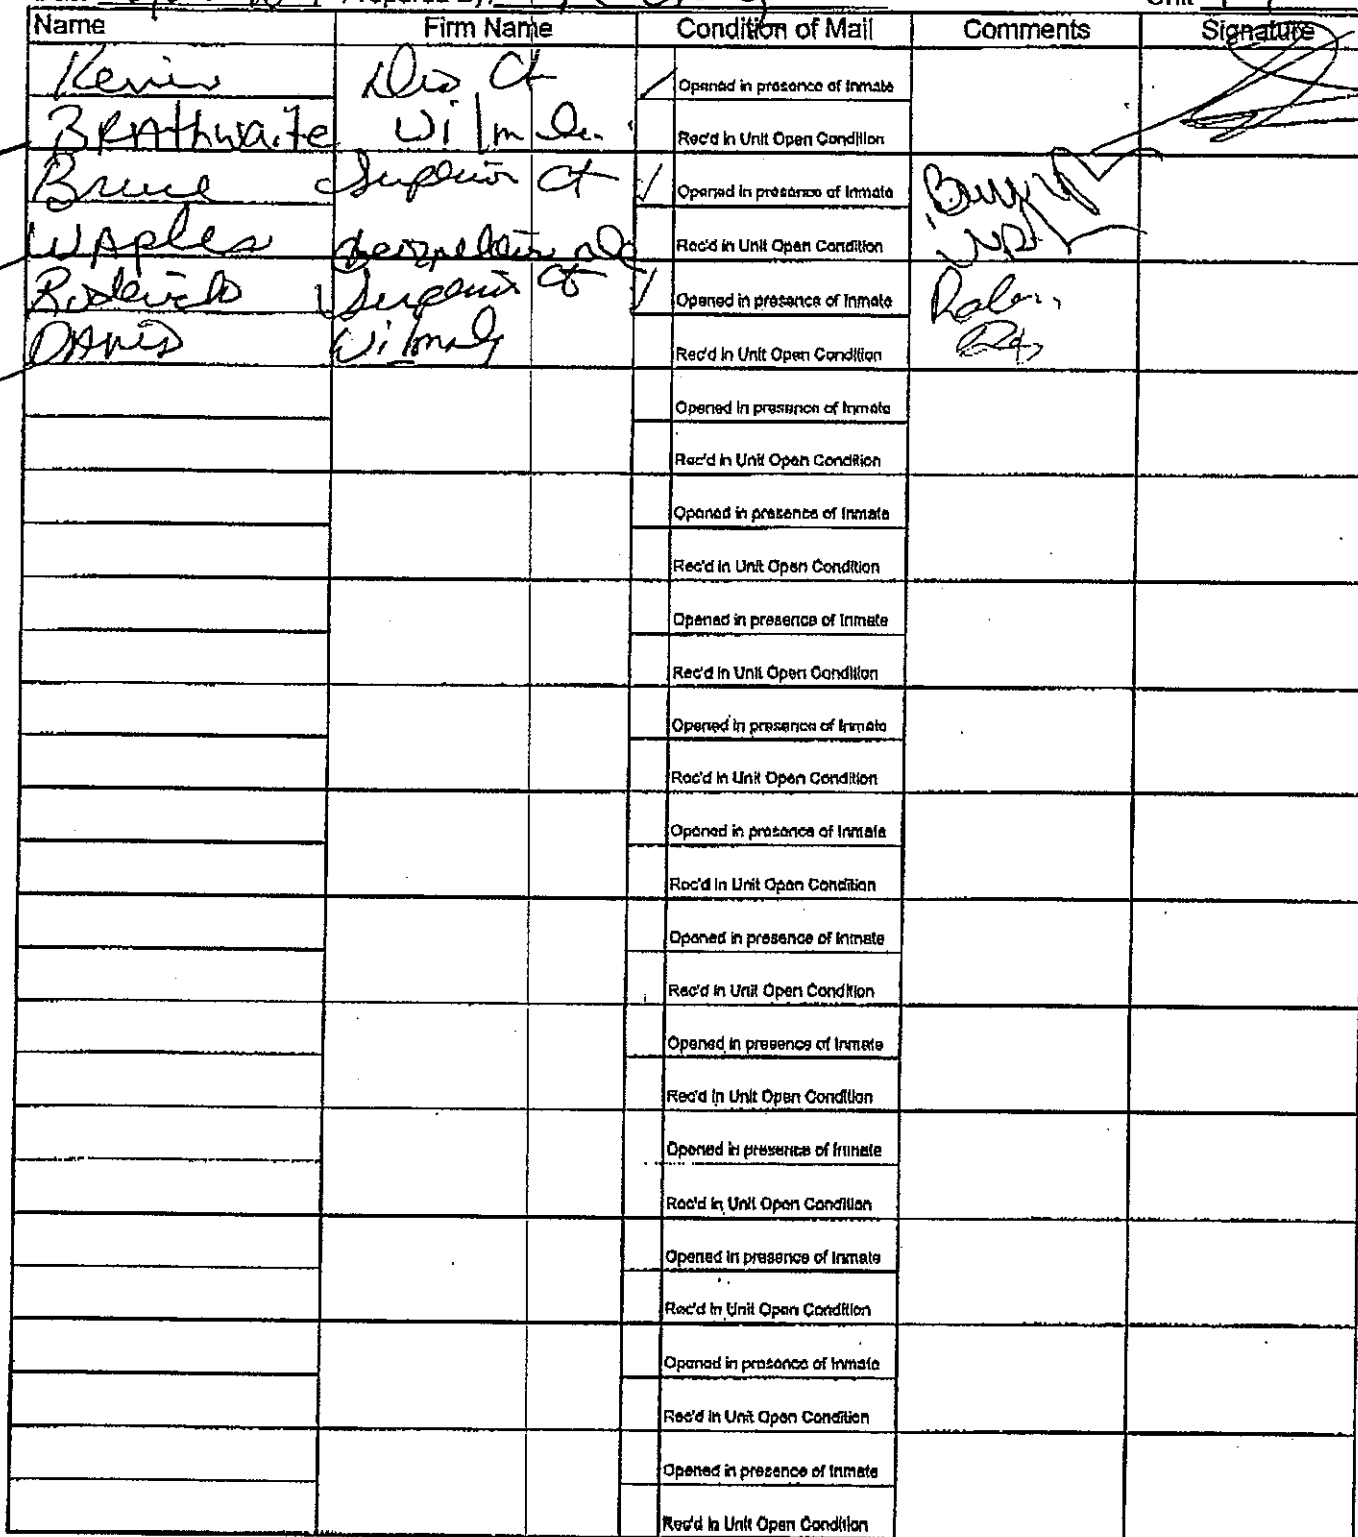 Prepared By: Unit
Name Firm Name Condition of Mail Comments Signature
Kevin Dis Ct Opened in presence of Inmate
BRAthwaite Wilm De. Rec'd in Unit Open Condition
Bruce Superior Ct Opened in presence of Inmate
WAples Georgetown De Rec'd in Unit Open Condition
Superior Ct Opened in presence of Inmate
DAVIS Wilm Rec'd in Unit Open Condition
Opened in presence of Inmate
Rec'd in Unit Open Condition
Opened in presence of Inmate
Rec'd in Unit Open Condition
Opened in presence of Inmate
Rec'd in Unit Open Condition
Opened in presence of Inmate
Rec'd in Unit Open Condition
Opened in presence of Inmate
Rec'd in Unit Open Condition
Opened in presence of Inmate
Rec'd in Unit Open Condition
Opened in presence of Inmate
Rec'd in Unit Open Condition
Opened in presence of Inmate
Rec'd in Unit Open Condition
Opened in presence of Inmate
Rec'd in Unit Open Condition
Opened in presence of Inmate
Rec'd in Unit Open Condition
Opened in presence of Inmate
Rec'd in Unit Open Condition